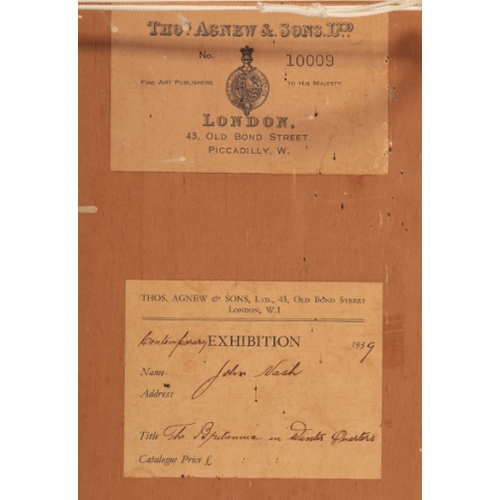 THOS. AGNEW & SONS, LTD
No. 10009
FINE ART PUBLISHERS TO HIS MAJESTY
LONDON,
43, OLD BOND STREET,
PICCADILLY, W.
THOS. AGNEW & SONS, LTD., 43, OLD BOND STREET
LONDON, W.1
Contemporary EXHIBITION 1939
Name John Nash
Address
Title The Britannia in Winter Quarters
Catalogue Price £